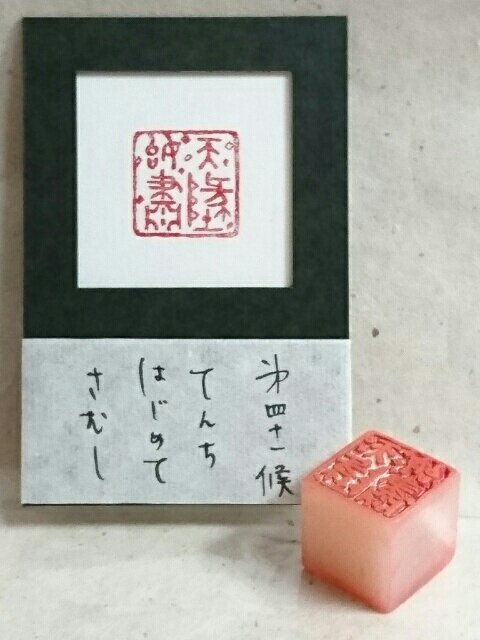 天地
始粛
第四十一候
てんち
はじめて
さむし